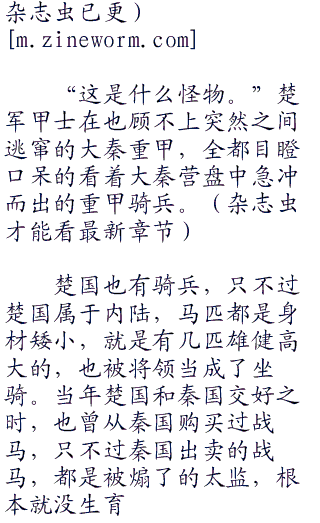 杂志虫已更）
[m.zineworm.com]
“这是什么怪物。”楚
军甲士在也顾不上突然之间
逃窜的大秦重甲，全都目瞪
口呆的看着大秦营盘中急冲
而出的重甲骑兵。（杂志虫
才能看最新章节）
楚国也有骑兵，只不过
楚国属于内陆，马匹都是身
材矮小，就是有几匹雄健高
大的，也被将领当成了坐
骑。当年楚国和秦国交好之
时，也曾从秦国购买过战
马，只不过秦国出卖的战
马，都是被煽了的太监，根
本就没生育